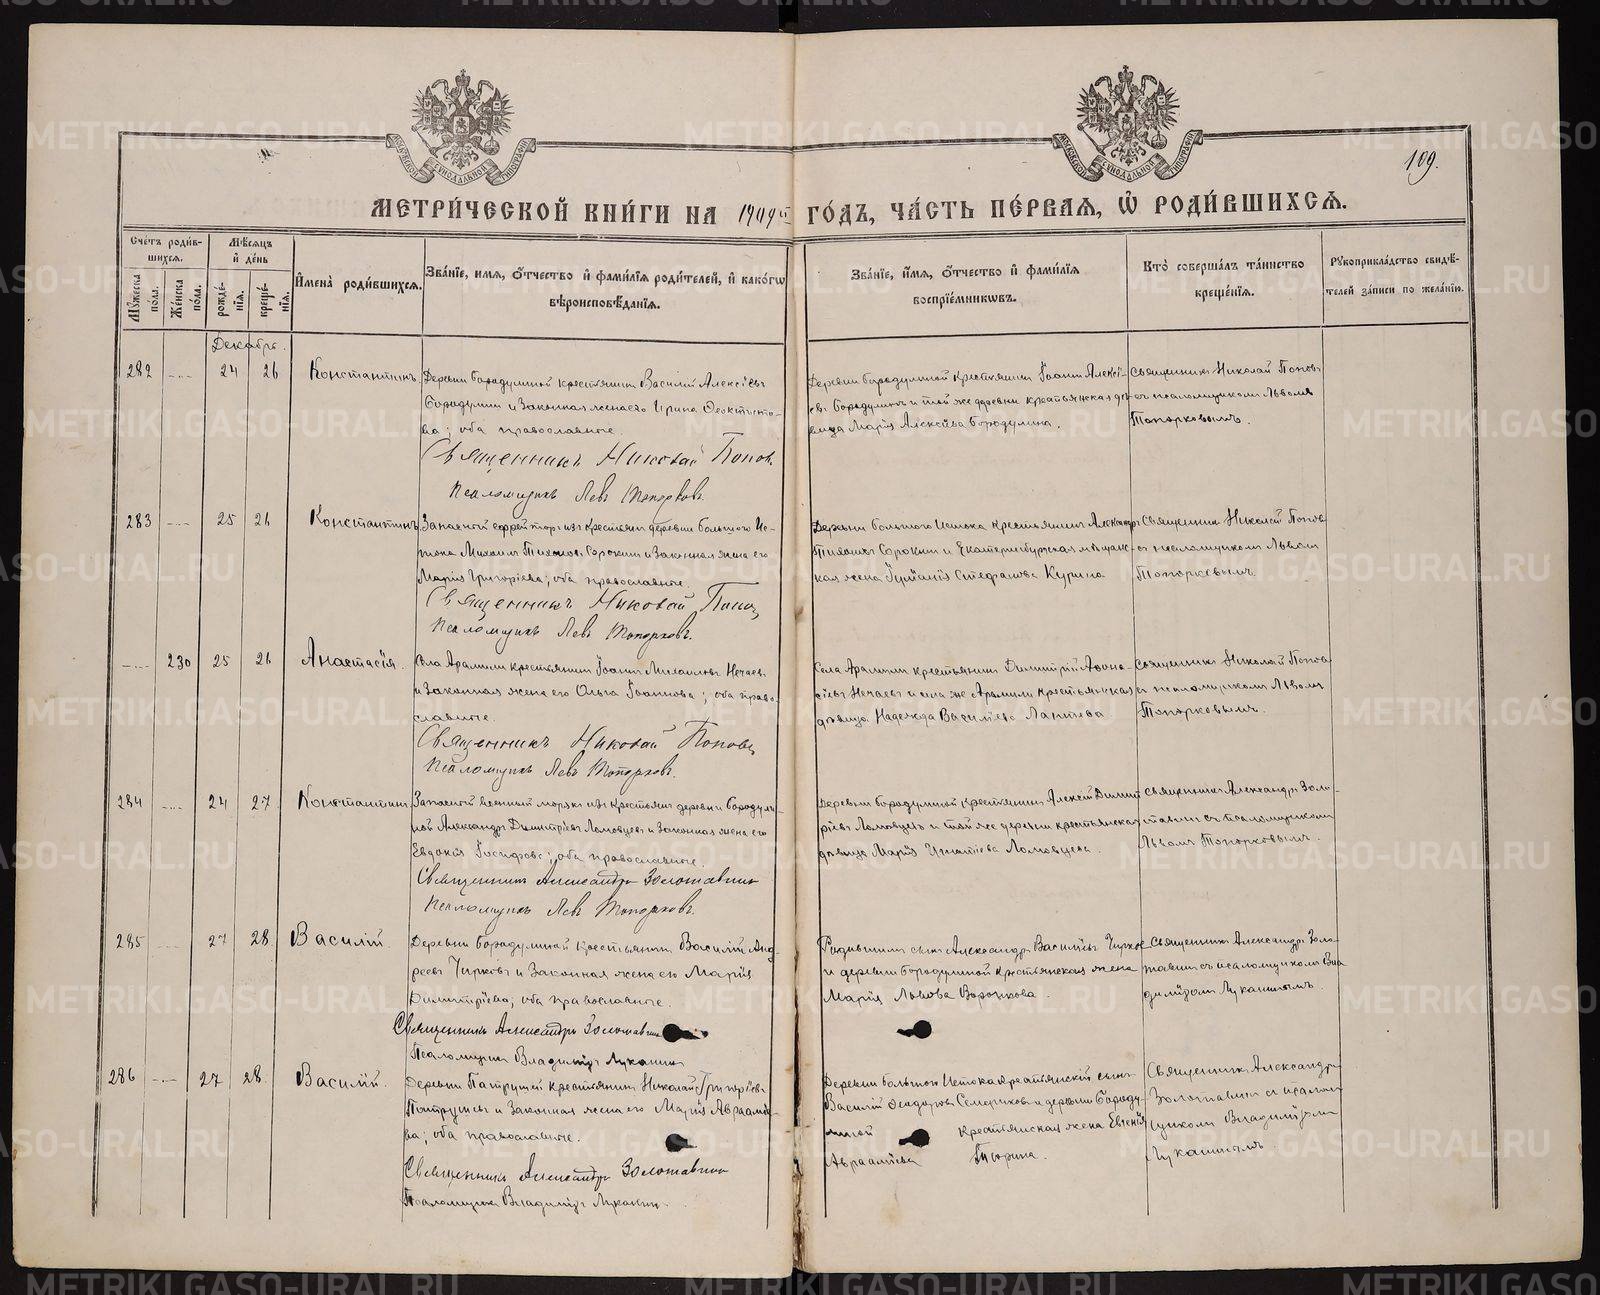 METRIKI.GASO-URAL.RU
109.
МОСКОВСКОЙ СѴНОДАЛЬНОЙ ТИПОГРАФІИ
МЕТРИ́ЧЕСКОЙ КНИ́ГИ НА 1909й ГО́ДЪ, ЧА́СТЬ ПЕ́РВАЯ, Ѽ РОДИ́ВШИХСЯ.
Сче́тъ роди́вшихся.
Мѣ́сяцъ и҆ де́нь
Му́жеска по́ла.
Же́нска по́ла.
рожде́нїя.
креще́нїя.
И҆мена̀ роди́вшихся.
Зва́нїе, и҆мя, ѻ҆́тчество и҆ фами́лїя роди́телей, и҆ како́гѡ вѣроисповѣ́данїя.
Зва́нїе, и҆́мя, ѻ҆́тчество и҆ фами́лїя воспрїе́мникѡвъ.
Кто̀ соверша́лъ та́инство креще́нїя.
Рꙋкоприкла́дство свидѣ́телей за́писи по жела́нїю.
Декабрь.
282 24 26 Константинъ
Деревни Бородулиной крестьянинъ Василій Алексіевъ
Бородулинъ и законная жена его Ирина Феоктисто-
ва; оба православные.
Священникъ Николай Поповъ
Псаломщикъ Левъ Топорковъ.
Деревни Бородулиной крестьянинъ Іоаннъ Алексі-
евъ Бородулинъ и той же деревни крестьянская дѣ-
вица Марія Алексіева Бородулина.
Священникъ Николай Поповъ
съ псаломщикомъ Львомъ
Топорковымъ.
283 25 26 Константинъ
Запасный ефрейторъ изъ крестьянъ деревни Большого Ис-
тока Михаилъ Тихоновъ Сорокинъ и законная жена его
Марія Григоріева; оба православные.
Священникъ Николай Поповъ
Псаломщикъ Левъ Топорковъ.
Деревни Большого Истока крестьянинъ Александръ
Тихоновъ Сорокинъ и Екатеринбургская мѣщанс-
кая жена Іуліанія Стефанова Курина
Священникъ Николай Поповъ
съ псаломщикомъ Львомъ
Топорковымъ.
230 25 26 Анастасія.
Села Арамили крестьянинъ Іоаннъ Михаиловъ Нечаевъ
и законная жена его Ольга Іоаннова; оба право-
славные.
Священникъ Николай Поповъ
Псаломщикъ Левъ Топорковъ.
Села Арамили крестьянинъ Димитрій Афона-
сіевъ Нечаевъ и села же Арамили крестьянская
дѣвица Надежда Василіева Лаптева
Священникъ Николай Поповъ
съ псаломщикомъ Львомъ
Топорковымъ.
284 24 27 Константинъ
Запасной военный морякъ изъ крестьянъ деревни Бородули-
ной Александръ Димитріевъ Ломовцевъ и законная жена его
Евдокія Іосифова; оба православные.
Священникъ Александръ Золотавинъ
Псаломщикъ Левъ Топорковъ.
Деревни Бородулиной крестьянинъ Алексій Димит-
ріевъ Ломовцевъ и той же деревни крестьянская
дѣвица Марія Игнатіева Ломовцева.
Священникъ Александръ Золо-
тавинъ съ псаломщикомъ
Львомъ Топорковымъ.
285 27 28 Василій.
Деревни Бородулиной крестьянинъ Василій Анд-
реевъ Чирковъ и законная жена его Марія
Димитріева; оба православные.
Священникъ Александръ Золотавинъ
Псаломщикъ Владиміръ Луканинъ
Родившихъ сынъ Александръ Василіевъ Чирковъ
и деревни Бородулиной крестьянская жена
Марія Львова Ворочкова.
Священникъ Александръ Золо-
тавинъ съ псаломщикомъ Вла-
диміромъ Луканинымъ.
286 27 28 Василій.
Деревни Патрушей крестьянинъ Николай Григоріевъ
Патрушевъ и законная жена его Марія Авраамі-
ва; оба православные.
Священникъ Александръ Золотавинъ
Псаломщикъ Владиміръ Луканинъ.
Деревни Большого Истока крестьянскій сынъ
Василій Феодоровъ Семериковъ и деревни Бороду-
линой крестьянская жена Евгенія
Авраамiева Тюрина.
Священникъ Александръ
Золотавинъ съ псалом-
щикомъ Владиміромъ
Луканинымъ